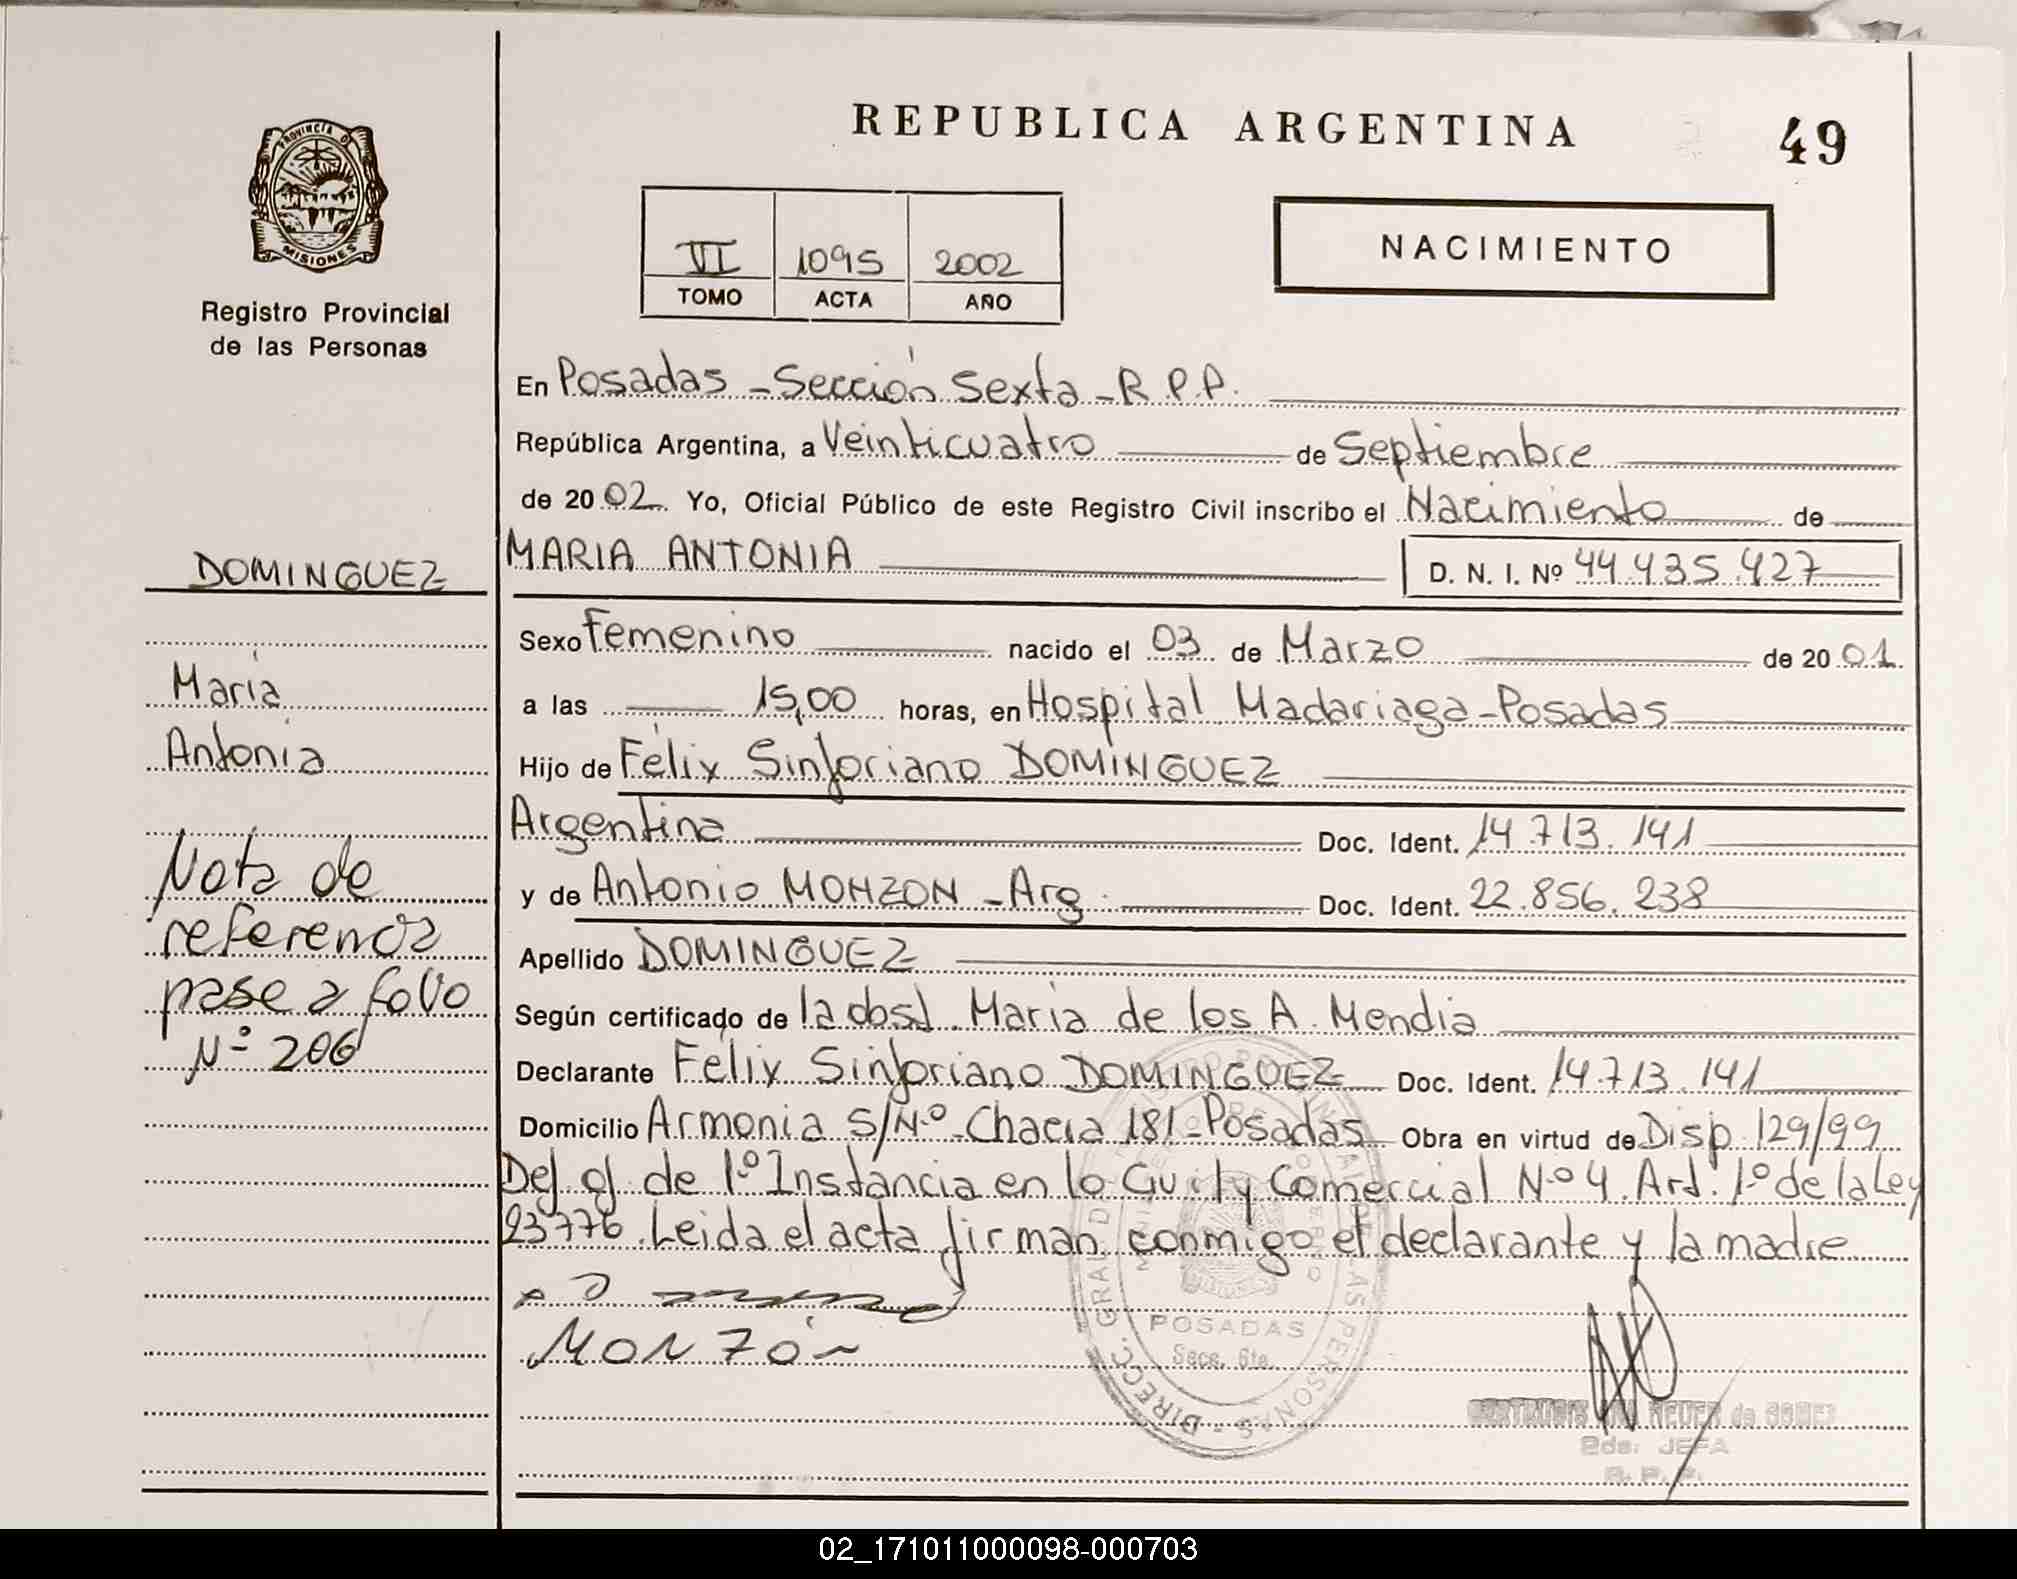 REPUBLICA ARGENTINA
49
PROVINCIA D
MISIONES
Registro Provincial
de las Personas
VI 1095 2002
TOMO ACTA AÑO
NACIMIENTO
En Posadas - Sección Sexta - R.P.P.
República Argentina, a Veinticuatro de Septiembre
de 2002. Yo, Oficial Público de este Registro Civil inscribo el Nacimiento de
MARIA ANTONIA D. N. I. Nº 44.435.427
Sexo Femenino nacido el 03 de Marzo de 2001.
a las 15,00 horas, en Hospital Madariaga - Posadas
Hijo de Félix Sinforiano DOMINGUEZ
Argentina Doc. Ident. 14.713.141
y de Antonia MONZON - Arg. Doc. Ident. 22.856.238
Apellido DOMINGUEZ
Según certificado de la obst. María de los A. Mendia
Declarante Félix Sinforiano DOMINGUEZ Doc. Ident. 14.713.141
Domicilio Armonia S/Nº - Chacra 181 - Posadas Obra en virtud de Disp. 129/99
Def. of. de 1º Instancia en lo Civil y Comercial Nº 4. Art. 1º de la Ley
23776. Leida el acta firman conmigo el declarante y la madre
MONZÓN
DOMINGUEZ
María
Antonia
Nota de
referencia
pase a folio
Nº 206
POSADAS
Secc. 6ta.
de GOMEZ
2da. JEFA
R. P. P.
02_171011000098-000703